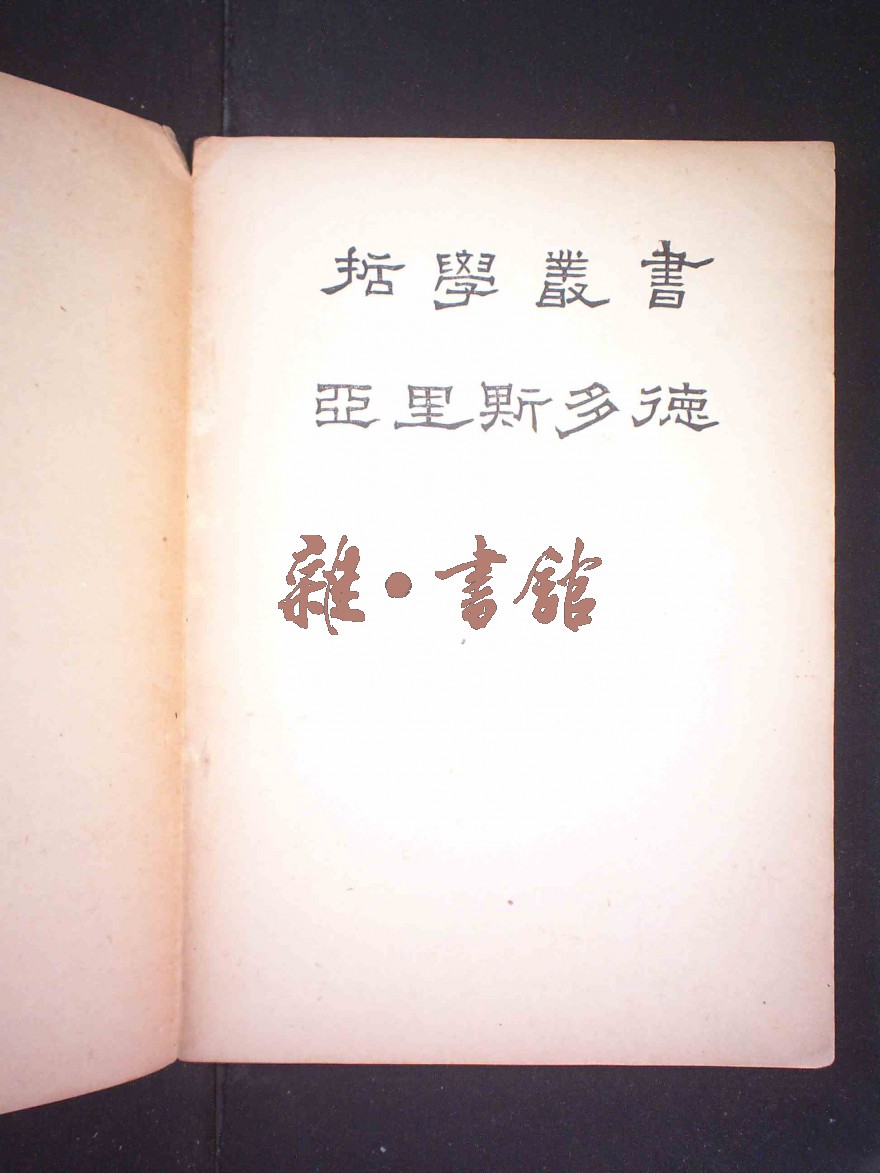 哲學叢書
亞里斯多德
雜·書館